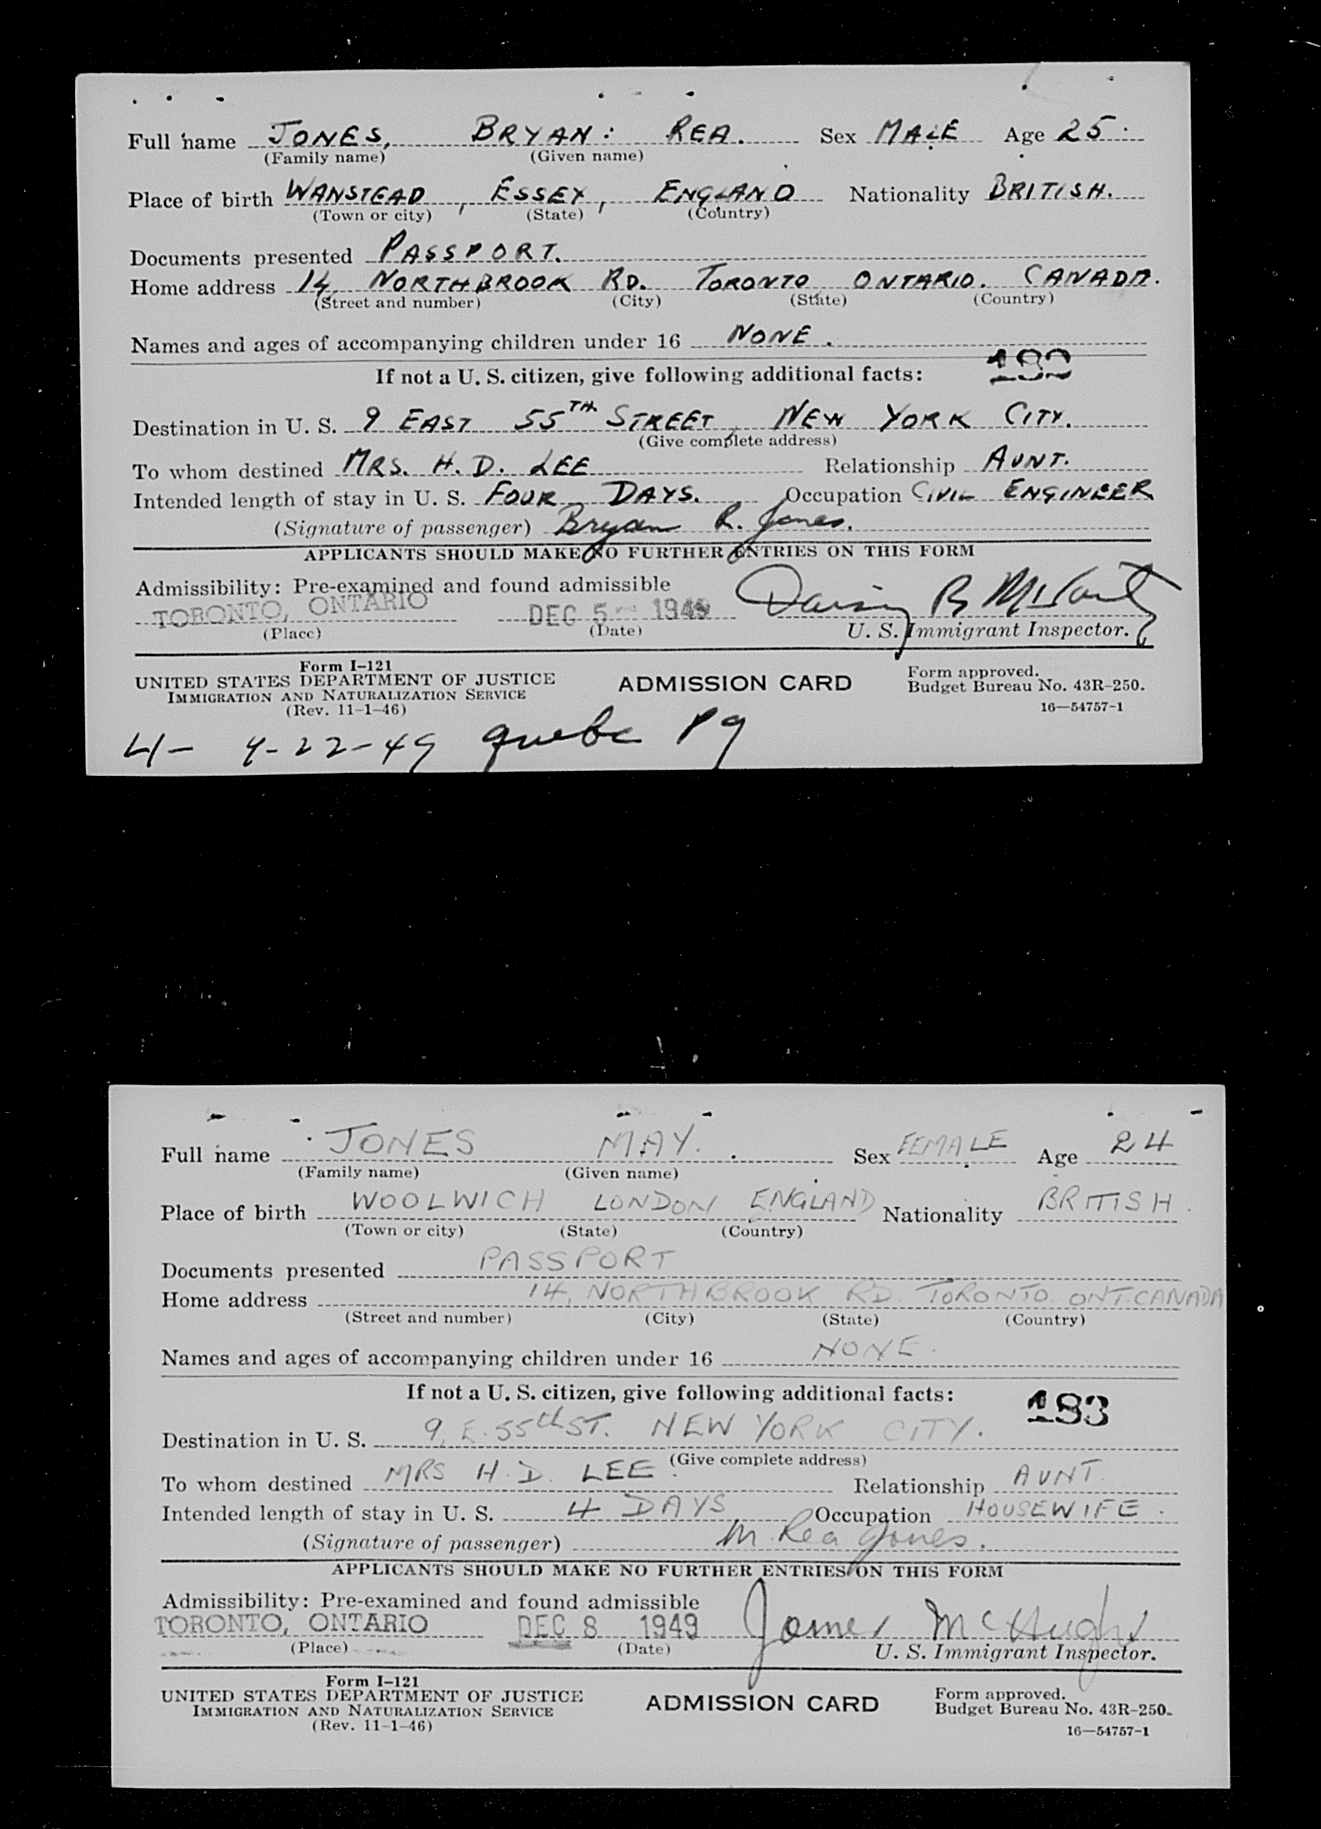 Full name JONES, BRYAN: REA. Sex MALE Age 25.
(Family name) (Given name)
Place of birth WANSTEAD, ESSEX, ENGLAND Nationality BRITISH.
(Town or city) (State) (Country)
Documents presented PASSPORT.
Home address 14, NORTHBROOK RD. TORONTO ONTARIO. CANADA.
(Street and number) (City) (State) (Country)
Names and ages of accompanying children under 16 NONE.
If not a U. S. citizen, give following additional facts:
Destination in U. S. 9 EAST 55TH STREET, NEW YORK CITY.
(Give complete address)
To whom destined MRS. H. D. LEE Relationship AUNT.
Intended length of stay in U. S. FOUR DAYS. Occupation CIVIL ENGINEER
(Signature of passenger) Bryan R. Jones.
APPLICANTS SHOULD MAKE NO FURTHER ENTRIES ON THIS FORM
Admissibility: Pre-examined and found admissible
TORONTO, ONTARIO DEC 5 1949
(Place) (Date) U. S. Immigrant Inspector.
Form I-121
UNITED STATES DEPARTMENT OF JUSTICE ADMISSION CARD Form approved.
IMMIGRATION AND NATURALIZATION SERVICE Budget Bureau No. 43R-250.
(Rev. 11-1-46) 16—54757-1
4-22-49
Full name JONES MAY. Sex FEMALE Age 24
(Family name) (Given name)
Place of birth WOOLWICH LONDON ENGLAND Nationality BRITISH.
(Town or city) (State) (Country)
Documents presented PASSPORT
Home address 14, NORTHBROOK RD. TORONTO. ONT. CANADA
(Street and number) (City) (State) (Country)
Names and ages of accompanying children under 16 NONE.
If not a U. S. citizen, give following additional facts: 183
Destination in U. S. 9, E. 55th ST. NEW YORK CITY.
(Give complete address)
To whom destined MRS H. D. LEE. Relationship AUNT.
Intended length of stay in U. S. 4 DAYS Occupation HOUSEWIFE.
(Signature of passenger) M. Rea Jones.
APPLICANTS SHOULD MAKE NO FURTHER ENTRIES ON THIS FORM
Admissibility: Pre-examined and found admissible
TORONTO, ONTARIO DEC 8 1949 James McHughs
(Place) (Date) U. S. Immigrant Inspector.
Form I-121
UNITED STATES DEPARTMENT OF JUSTICE ADMISSION CARD Form approved.
IMMIGRATION AND NATURALIZATION SERVICE Budget Bureau No. 43R-250.
(Rev. 11-1-46) 16—54757-1